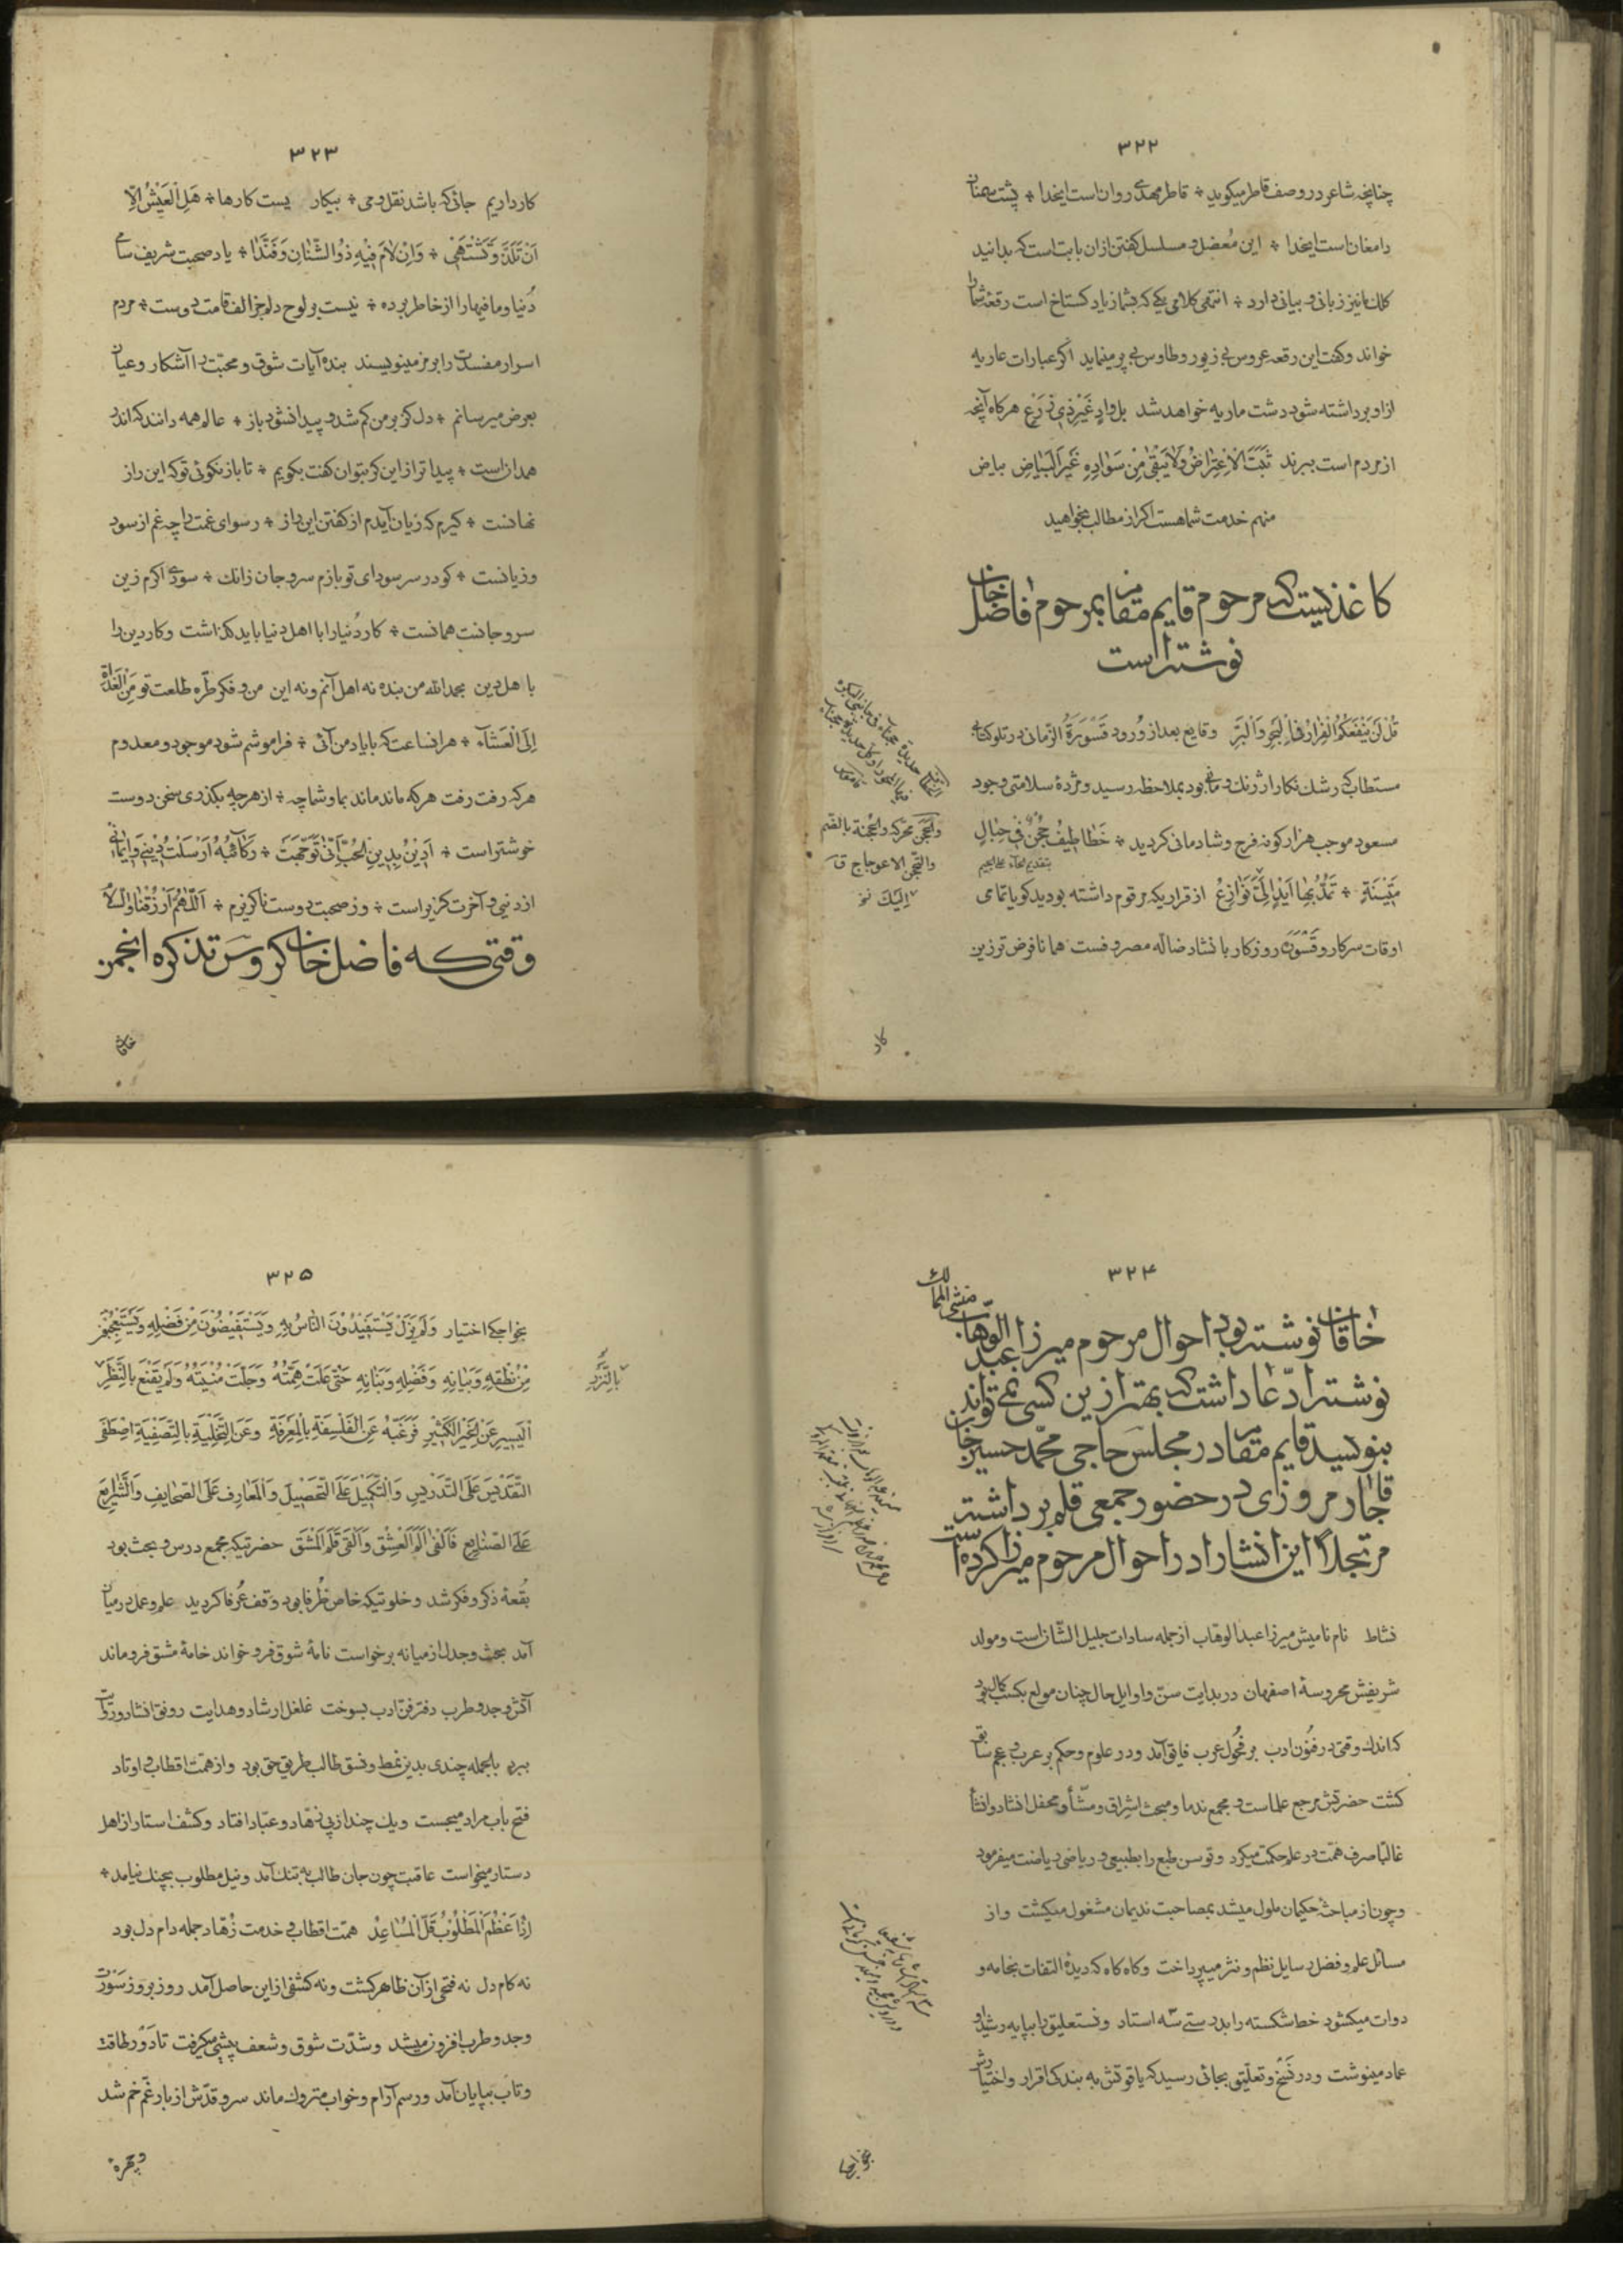 ۳۲۲
چنانچه شاعر در وصف قاطر میکوید * قاطر مهدی روان است ایخدا * پشت مهنان
دامغان است ایخدا * این مُعضل و مسلسل کفتن ازان بابت است که بدانید
کلک مانیز زبانی و بیانی دارد * انتهی کلامی یکی که بشما زیاد کستاخ است رقعهٔ شما را
خواند و کفت این رقعه عروس بی زیور و طاوس بی پر مینماید اکر عبارات عاریه
ازاو برداشته شود دشت ماریه خواهد شد بل وادٍ غَیْرِ ذِی زَرْعٍ هرکاه آنچه
از مردم است ببرند ثَبَتَ الْاِعْتِراضُ وَلایَبْقیٰ مِنْ سَوٰادِهِ غَیْرُ الْبَیٰاضِ بیاض
منهم خدمت شما هست اکر از مطالب بخواهید
کاغذیست که مرحوم قایم مقام بمرحوم فاضل خان
نوشته است
قُلْ لَنْ یَنْفَعَکُمُ الْفِرٰارُ فِی الْبَحْرِ وَالْبَرِّ وقایع بعد از وُرود قَسْوَرَةُ الزّمانی در تلو کتاب
مستطاب که رشک نکار ارژنک و مانی بود بملاحظه رسید و مژدهٔ سلامتی وجود
مسعود موجب هزار کونه فرح و شادمانی کردید * خَطٰاطِیفُ حُجْنٌ فی حِبٰالٍ
بتقدیم الحاء علی الجیم
مَتینَةٍ * تَمُدُّ بِهٰا اَیْدٍ اِلَیْکَ نَوٰازِعُ ازقراریکه مرقوم داشته بودید کویا تمامی
اوقات سرکار و قَسْوَرَه روزکار بانشاد ضالّه مصروفست همانا فرض تر زین
والحَجَن محرّکه والحُجنة بالضّم
والتّحجّن الاعوجاج ق
اِلَیْکَ نخ
کار
۳۲۳
کار داریم جائی که باشد نقل و می * بیکار یست کارها * هَلِ الْعَیْشُ اِلّا
اَنْ تَلَذَّ وَتَشْتَهی * وَاِنْ لٰامَ فیهِ ذُوالشَّنٰانِ وَفَنَّدٰا * یاد صحبت شریف سامی
دُنیا و مافیها را از خاطر برده * نیست بر لوح دلم جز الف قامت دوست * مردم
اسرار مفسدت را برمز مینویسند بنده آیات شوق و محبّت را آشکار و عیان
بعرض میرسانم * دل کز بر من کم شد و پیدا نشود باز * عالم همه دانند که اندر
همدانست * پیدا تر از این کر بتوان کفت بکویم * تا باز نکوئی تو که این راز
نهانست * کیرم که زیان آیدم از کفتن این راز * رسوای غمت را چه غم از سود
و زیانست * کو در سر سودای تو بازم سر و جان زانک * سودی اکرم زین
سر و جانست همانست * کار دُنیا را با اهل دنیا باید کذاشت و کار دین را
با هل دین بحمد الله من بنده نه اهل آنم ونه این من و فکر طرّه طلعت تو مِنَ الْغَدٰاةِ
اِلَی الْعَشٰآءِ * هر انساعت که بایاد من آئی * فراموشم شود موجود و معدوم
هرکه رفت رفت هرکه ماند ماند بما و شما چه * از هرچه بکذری سخن دوست
خوشتر است * اَدینُ بِدینِ الْحُبِّ اَنّیٰ تَوَجَّهَتْ * رَکٰآئِبُهُ اَرْسَلْتُ دینی وَایمٰانی
از دنیی و آخرت کزیر است * وز صحبت دوست ناکزیرم * اَللّٰهُمَّ ارْزُقْنٰا وَالسَّلٰام
وقتی که فاضل خان کروسی تذکره انجمن
خاقان
۳۲۴
خاقان نوشته بود احوال مرحوم میرزا عبدالوهّاب منشی الممالک
نوشته ادّعا داشت که بهتر ازین کسی نمی تواند
بنویسد قایم مقام در مجلس حاجی محمّد حسین خان
قاجار مروزی در حضور جمعی قلم برداشته
مرتجلاً این انشا را در احوال مرحوم میرزا کرده است
نشاط نام نامیش میرزا عبدالوهاب از جمله سادات جلیل الشّان است و مولد
شریفش محروسهٔ اصفهان در بدایت سنّ و اوایل حال چنان مولع بکسب کمال بود
که اندک وقتی در فنُون ادب بر فحُول عرب فایق آمد و در علوم و حکم بر عرب و عجم سابق
کشت حضرتش مرجع علماست و مجمع ندما و مبحث اشراق و مشّا و محفل انشاد و انشا
غالبا صرف همّت در علم حکمت میکرد و توسن طبع را بطبیعی و ریاضی ریاضت میفرمود
و چون از مباحثهٔ حکیمان ملول میشد بمصاحبت ندیمان مشغول میکشت و از
مسائل علم و فضل برسایل نظم و نثر میپرداخت و کاه کاه که دیدهٔ التفات بخامه و
دوات میکشود خط شکسته را بدرستی سه استاد و نستعلیق را بپایه رشید و
عماد مینوشت و در نَسْخ و تعلّیق بجائی رسید که یاقوتش به بندکی اقرار و اختیارش
بخواجکی
۳۲۵
بخواجکی اختیار وَلَمْ یَزَلْ یَسْتَفیدُونَ النّاسُ بِهِ وَیَسْتَفیضُونَ مِنْ فَضْلِهِ وَیَسْتَعْجِبُونَ
مِنْ نُطْقِهِ وَبَیٰانِهِ وَفَضْلِهِ وَبَنٰانِهِ حَتّیٰ عَلَتْ هِمَّتُهُ وَجَلَّتْ مُنْیَتُهُ وَلَمْ یَقْنَعْ بِالنَّظَرِ
الْیَسیرِ عَنِ الْخَیْرِ الْکَثیرِ فَرَغَّبَهُ عَنِ الْفَلْسَفَةِ بِالْمَعْرِفَةِ وَعَنِ التَّخْلِیَةِ بِالتَّصْفِیَةِ اصْطَفیٰ
التَّقْدیسَ عَلَی التَّدْریسِ وَالتَّکْمیلَ عَلَی التَّحْصیلَ وَالْمَعٰارِفَ عَلَی الصَّحٰایِفِ وَالشَّرٰایِعَ
عَلَی الصَّنٰایِعِ فَاَلْفیٰ اَلَمَ الْعِشْقِ وَاَلْقیٰ قَلَمَ الْمَشْقِ حضرتیکه مجمع درس و بحث بود
بُقعهٔ ذکر و فکر شد و خلوتیکه خاص ظُرفا بود وقف عُرفا کردید علم و عمل درمیان
آمد بحث و جدل از میانه برخواست نامهٔ شوق فرو خواند خامهٔ مشق فرو ماند
آتش وجد و طرب دفتر فنّ ادب بسوخت غلغل ارشاد و هدایت رونق انشاد و روایت
ببرد بالجمله چندی بدین نمط و نسق طالب طریق حق بود و از همّت اقطاب و اوتاد
فتح باب مراد میجست ویک چند از پی زهّاد و عبّاد افتاد و کشف استار از اهل
دستار میخواست عاقبت چون جان طالب به تنک آمد و نیل مطلوب بچنک نیامد *
اِذٰا عَظُمَ الْمَطْلُوبُ قَلَّ الْمُسٰاعِدُ همّت اقطاب و خدمت زُهاد جمله دام دل بود
نه کام دل نه فتحی از آن ظاهر کشت ونه کشفی از این حاصل آمد روز بروز سَوْرت
وجد و طرب افزون میشد و شدّت شوق و شعف پیشی میکرفت تا دَوْر طاقت
و تاب بپایان آمد و رسم آرام و خواب متروک ماند سرو قدّش از بار غَم خم شد
وچهره